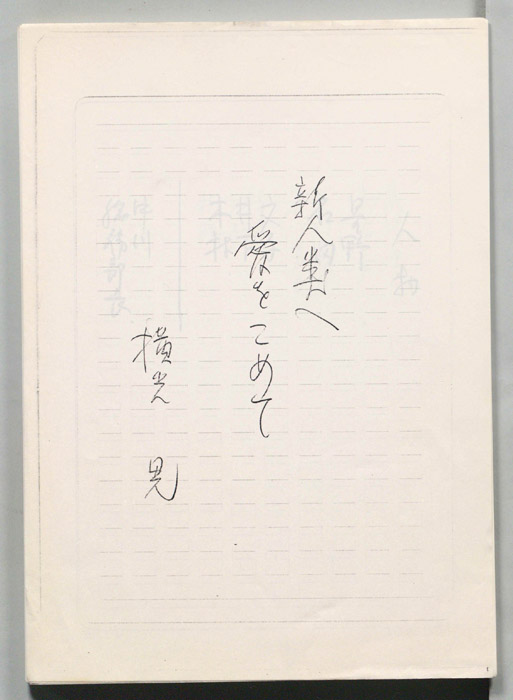 新人類へ
愛をこめて
横光 晃
人物